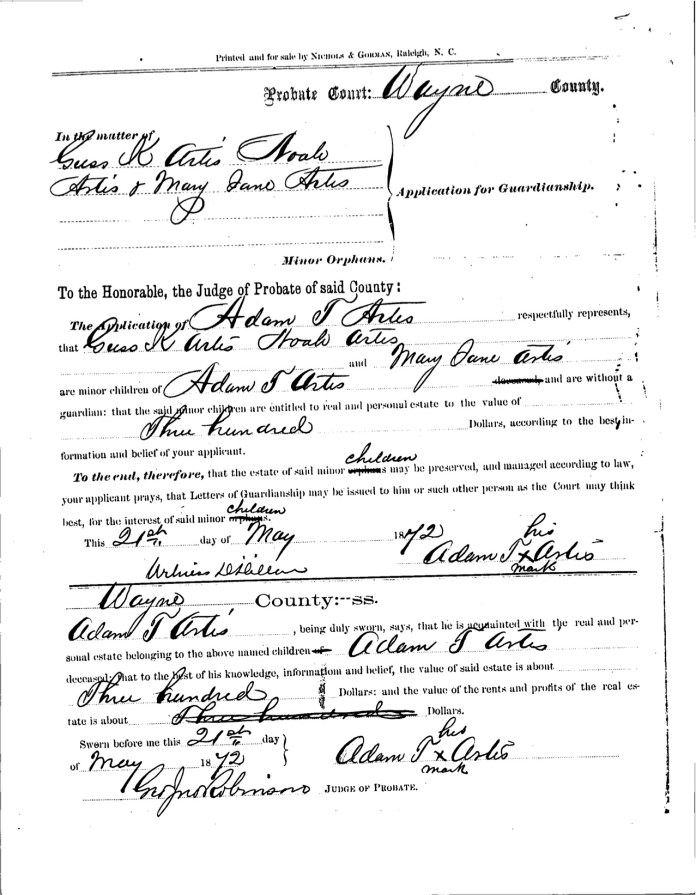 Printed and for sale by NICHOLS & GORMAN, Raleigh, N. C.
Probate Court: Wayne County.
In the matter of
Guss K Artis Noah
Artis & Mary Jane Artis
Application for Guardianship.
Minor Orphans.
To the Honorable, the Judge of Probate of said County:
The Application of Adam T Artis respectfully represents,
that Guss K Artis Noah Artis
and Mary Jane Artis
are minor children of Adam T Artis deceased, and are without a
guardian: that the said minor children are entitled to real and personal estate to the value of
Three hundred Dollars, according to the best in-
formation and belief of your applicant.
children
To the end, therefore, that the estate of said minor orphans may be preserved, and managed according to law,
your applicant prays, that Letters of Guardianship may be issued to him or such other person as the Court may think
children
best, for the interest of said minor orphans.
This 21st day of May 1872 his
Adam T x Artis
mark
Witness
Wayne County:--ss.
Adam T Artis, being duly sworn, says, that he is acquainted with the real and per-
sonal estate belonging to the above named children of Adam T Artis
deceased; that to the best of his knowledge, information and belief, the value of said estate is about
Three hundred Dollars: and the value of the rents and profits of the real es-
tate is about Three hundred Dollars.
Sworn before me this 21st day his
of May 1872 Adam T x Artis
mark
Robinson JUDGE OF PROBATE.